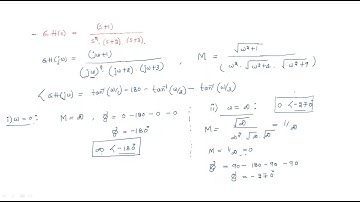 - G.H(s) = (s+1) / s². (s+2). (s+3)
GH(jω) = (jω+1) / (jω)² (jω+2) (jω+3) , M = √ω²+1 / (ω². √ω²+4. √ω²+9)
∠GH(jω) = tan⁻¹(ω/1) -180 - tan⁻¹(ω/2) - tan⁻¹(ω/3)
i) ω=0: M = ∞, ∅ = 0-180-0-0
∅ = -180°
∞ ∠-180°
ii) ω = ∞: 0 ∠-270°
M = √∞ / ω² √∞ √∞ = 1/∞
M = 1/∞ = 0
∅ = 90-180-90-90
∅ = -270°